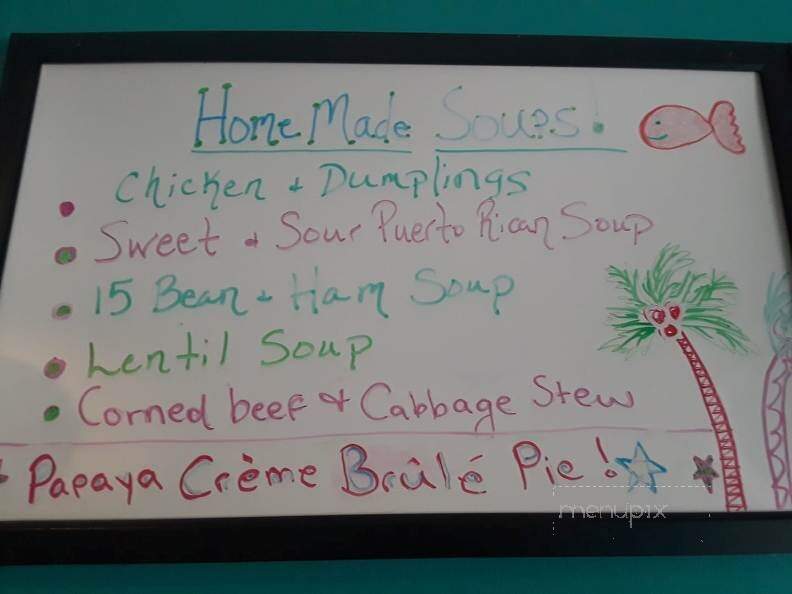 HomeMade Soups!
Chicken + Dumplings
Sweet + Sour Puerto Rican Soup
15 Bean + Ham Soup
Lentil Soup
Corned beef + Cabbage Stew
Papaya Crème Brûlé Pie!
menupix